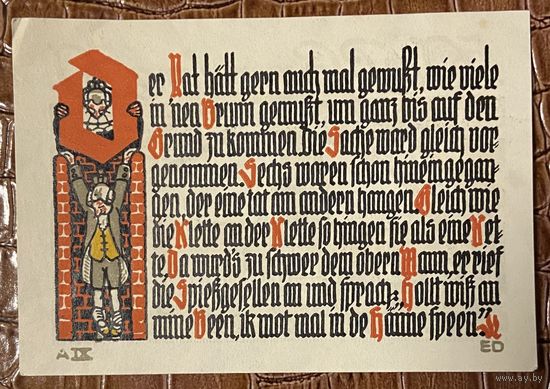 Der Rat hätt gern auch mal gewußt, wie viele
in'nen Brunn gemußt, um ganz bis auf den
Grund zu kommen. Die Sache ward gleich vor-
genommen. Sechs waren schon hineingegan-
gen, der eine tat am andern hangen. Gleich wie
die Klette an der Klette so hingen sie als eine Ket-
te. Da wurd's zu schwer dem obern Mann, er rief
die Spießgesellen an und sprach: "Hollt wiß an
mine Been, ik mot mal in de Hänne speen."
A IX
ED
www.ay.by